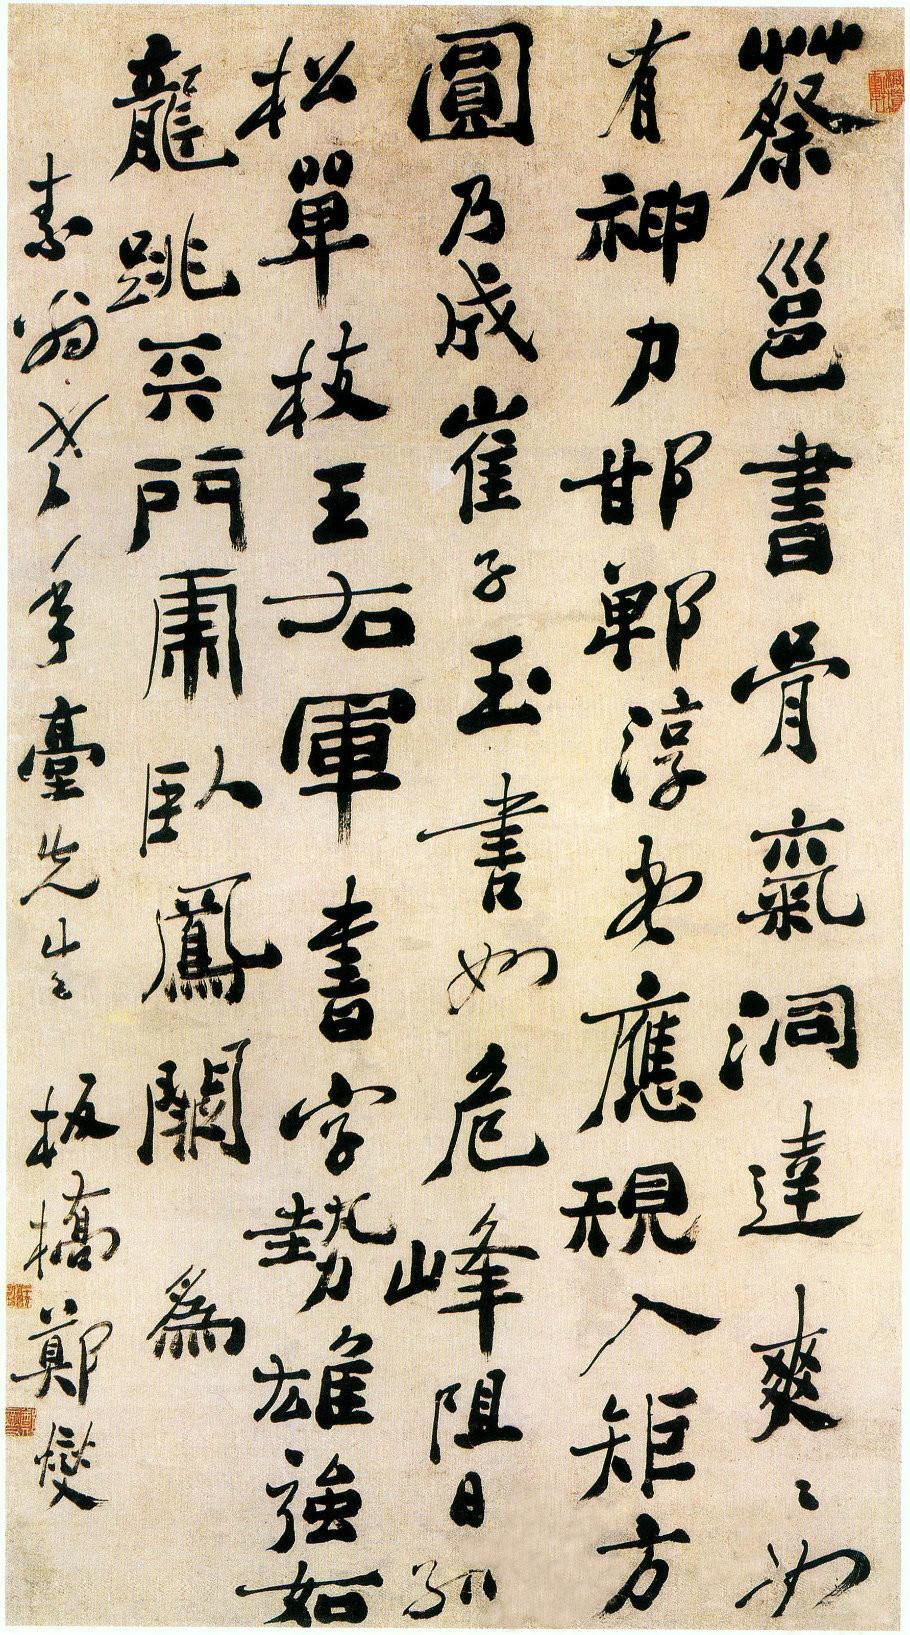 蔡邕書骨氣洞達爽〻如
有神力邯鄲淳書應規入矩方
圓乃成崔子玉書如危峰阻日孤
松單枝王右軍書字勢雄強如
龍跳天門虎臥鳳闕為
素翁老年臺先生
板橋鄭燮